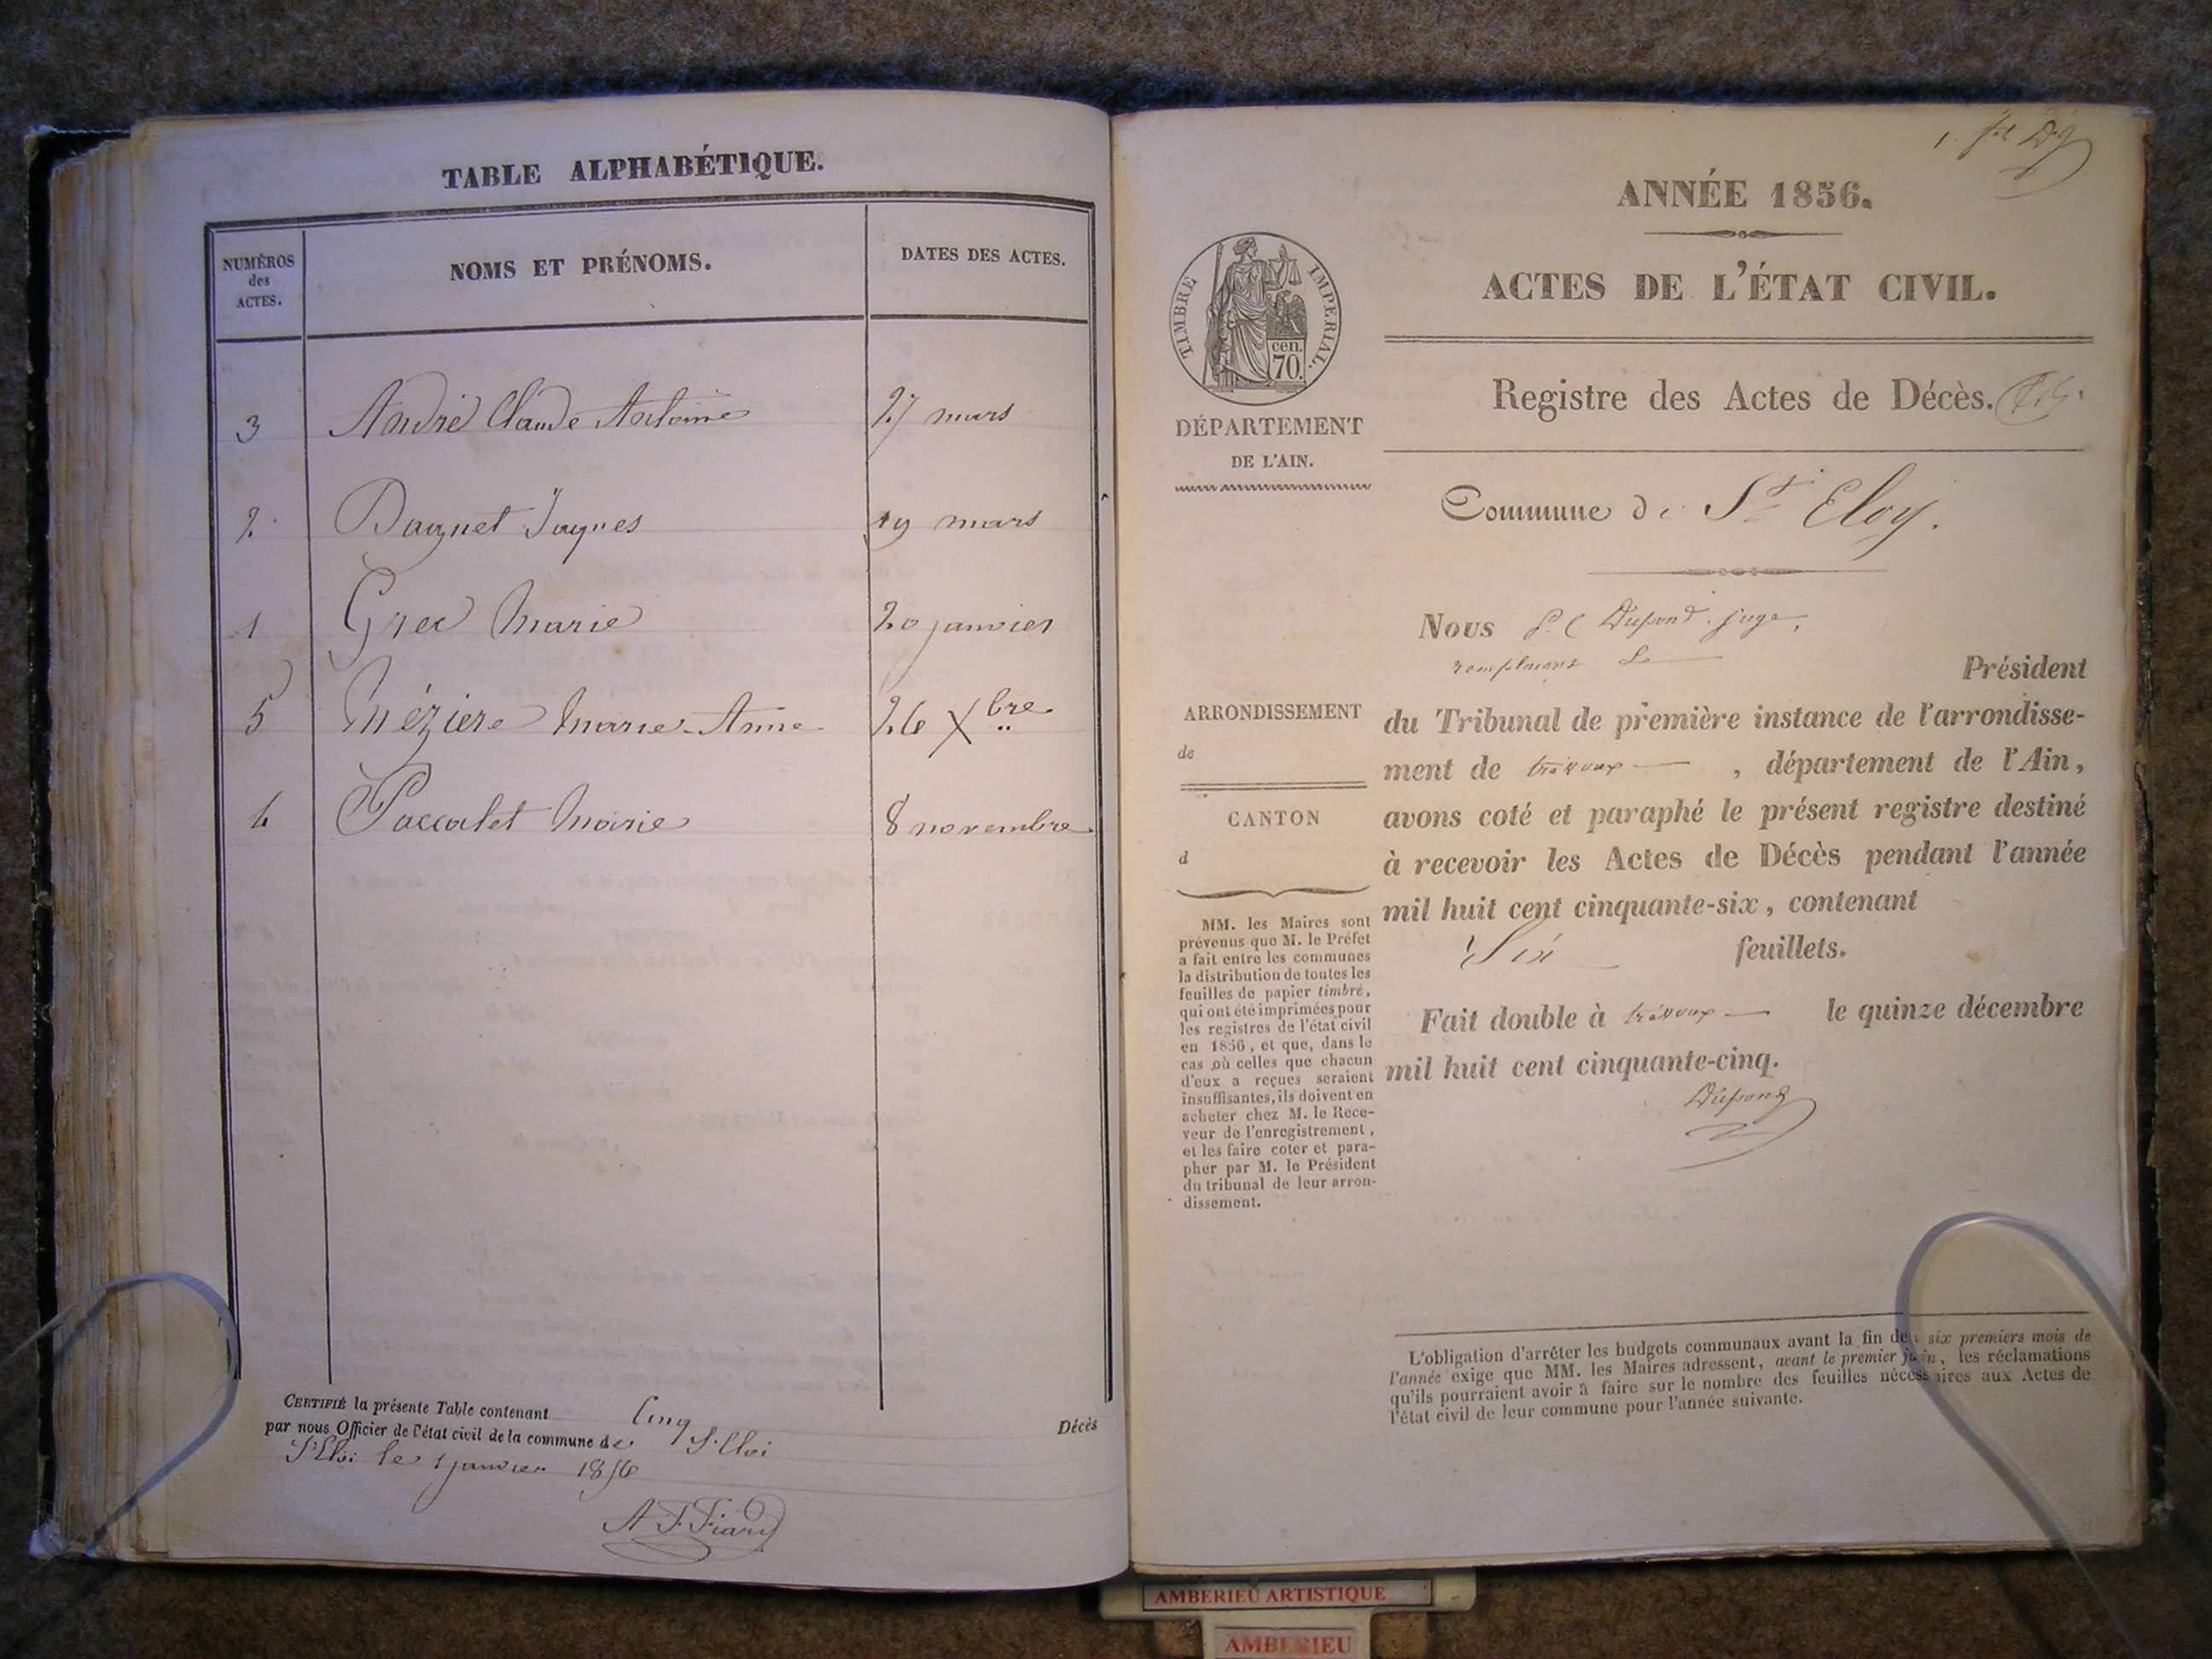 TABLE ALPHABÉTIQUE.
NUMÉROS
des
ACTES.
NOMS ET PRÉNOMS.
DATES DES ACTES.
3 André Claude Antoine 27 mars
2. Daguet Jaques 19 mars
1 Grec Marie 20 janvier
5 Mézière Marie-Anne 26 Xbre
4 Paccalet Marie 8 novembre
CERTIFIÉ la présente Table contenant Cinq Décès
par nous Officier de l'état civil de la commune de St. Eloi
St Eloi le 1 janvier 1856
ANNÉE 1856.
ACTES DE L'ÉTAT CIVIL.
TIMBRE IMPERIAL.
cen.
70.
DÉPARTEMENT
DE L'AIN.
Registre des Actes de Décès.
Commune de St Eloy.
Nous Dupond juge,
remplacant le Président
du Tribunal de première instance de l'arrondisse-
ment de trévoux , département de l'Ain,
avons coté et paraphé le présent registre destiné
à recevoir les Actes de Décès pendant l'année
mil huit cent cinquante-six, contenant
Six feuillets.
Fait double à trévoux le quinze décembre
mil huit cent cinquante-cinq.
Dupond
ARRONDISSEMENT
de
CANTON
d
MM. les Maires sont
prévenus que M. le Préfet
a fait entre les communes
la distribution de toutes les
feuilles de papier timbré,
qui ont été imprimées pour
les registres de l'état civil
en 1856, et que, dans le
cas où celles que chacun
d'eux a reçues seraient
insuffisantes, ils doivent en
acheter chez M. le Rece-
veur de l'enregistrement,
et les faire coter et para-
pher par M. le Président
du tribunal de leur arron-
dissement.
L'obligation d'arrêter les budgets communaux avant la fin des six premiers mois de
l'année exige que MM. les Maires adressent, avant le premier juin, les réclamations
qu'ils pourraient avoir à faire sur le nombre des feuilles nécessaires aux Actes de
l'état civil de leur commune pour l'année suivante.
AMBERIEU ARTISTIQUE
AMBERIEU